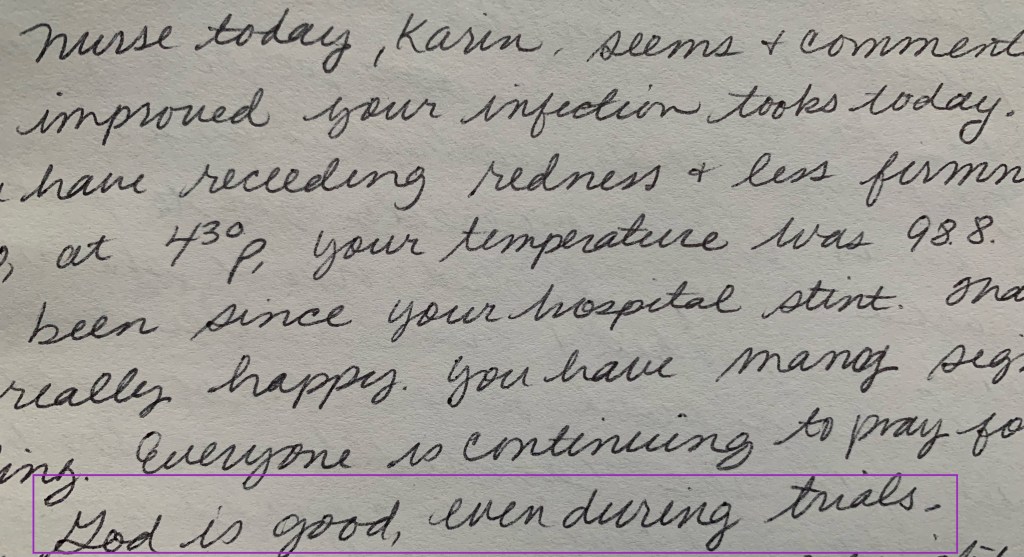 nurse today, Karin. seems + comment
improved your infection tooks today.
have receeding redness + less firmn
at 4³⁰p, your temperature was 98.8.
been since your hospital stint. Tha
really happy. You have many sig
ing. Everyone is continuing to pray fo
God is good, even during trials.